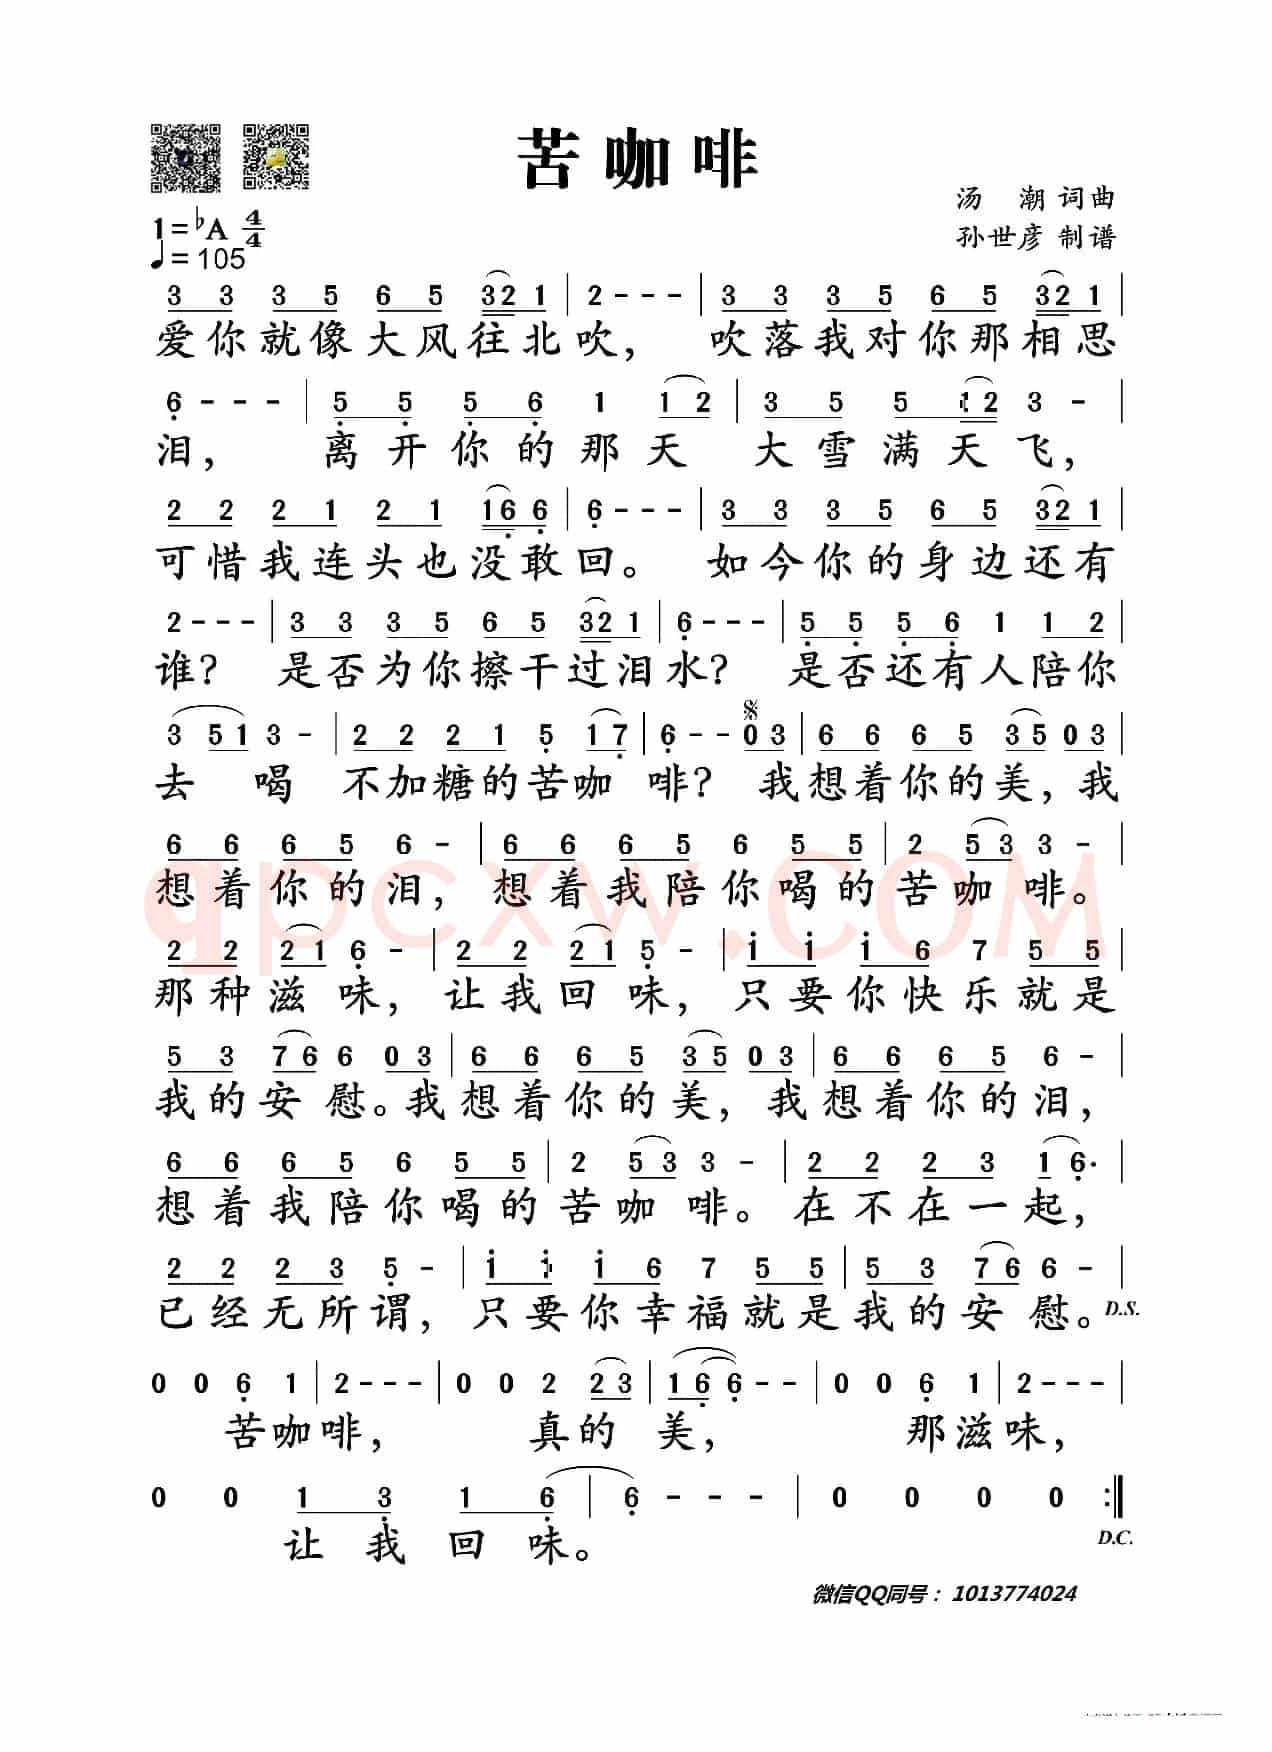 苦咖啡
汤 潮 词曲
1=♭A 4/4
孙世彦 制谱
♩=105
3 3 3 5 6 5 3 2 1 | 2 - - - | 3 3 3 5 6 5 3 2 1 |
爱你就像大风往北吹， 吹落我对你那相思
6 - - - | 5 5 5 6 1 1 2 | 3 5 5 1 2 3 - |
泪， 离开你的那天 大雪满天飞，
2 2 2 1 2 1 1 6 6 | 6 - - - | 3 3 3 5 6 5 3 2 1 |
可惜我连头也没敢回。 如今你的身边还有
2 - - - | 3 3 3 5 6 5 3 2 1 | 6 - - - | 5 5 5 6 1 1 2 |
谁？ 是否为你擦干过泪水？ 是否还有人陪你
3 5 1 3 - | 2 2 2 1 5 1 7 | 6 - - 0 3 | 6 6 6 5 3 5 0 3 |
去 喝 不加糖的苦咖 啡？ 我想着你的美，我
6 6 6 5 6 - | 6 6 6 5 6 5 5 | 2 5 3 3 - |
想着你的泪， 想着我陪你喝的苦咖 啡。
qpcxw.COM
2 2 2 1 6 - | 2 2 2 1 5 - | i i i 6 7 5 5 |
那种滋 味， 让我回 味， 只要你快乐就是
5 3 7 6 6 0 3 | 6 6 6 5 3 5 0 3 | 6 6 6 5 6 - |
我的安 慰。我想着你的美， 我想着你的泪，
6 6 6 5 6 5 5 | 2 5 3 3 - | 2 2 2 3 1 6· |
想着我陪你喝的苦咖 啡。 在不在一起，
2 2 2 3 5 - | i i i 6 7 5 5 | 5 3 7 6 6 - |
已经无所谓， 只要你幸福就是我的安 慰。 D.S.
0 0 6 1 | 2 - - - | 0 0 2 2 3 | 1 6 6 - - | 0 0 6 1 | 2 - - - |
苦咖啡， 真的 美， 那滋味，
0 0 1 3 1 6 | 6 - - - | 0 0 0 0 :||
让 我 回 味。 D.C.
微信QQ同号： 1013774024